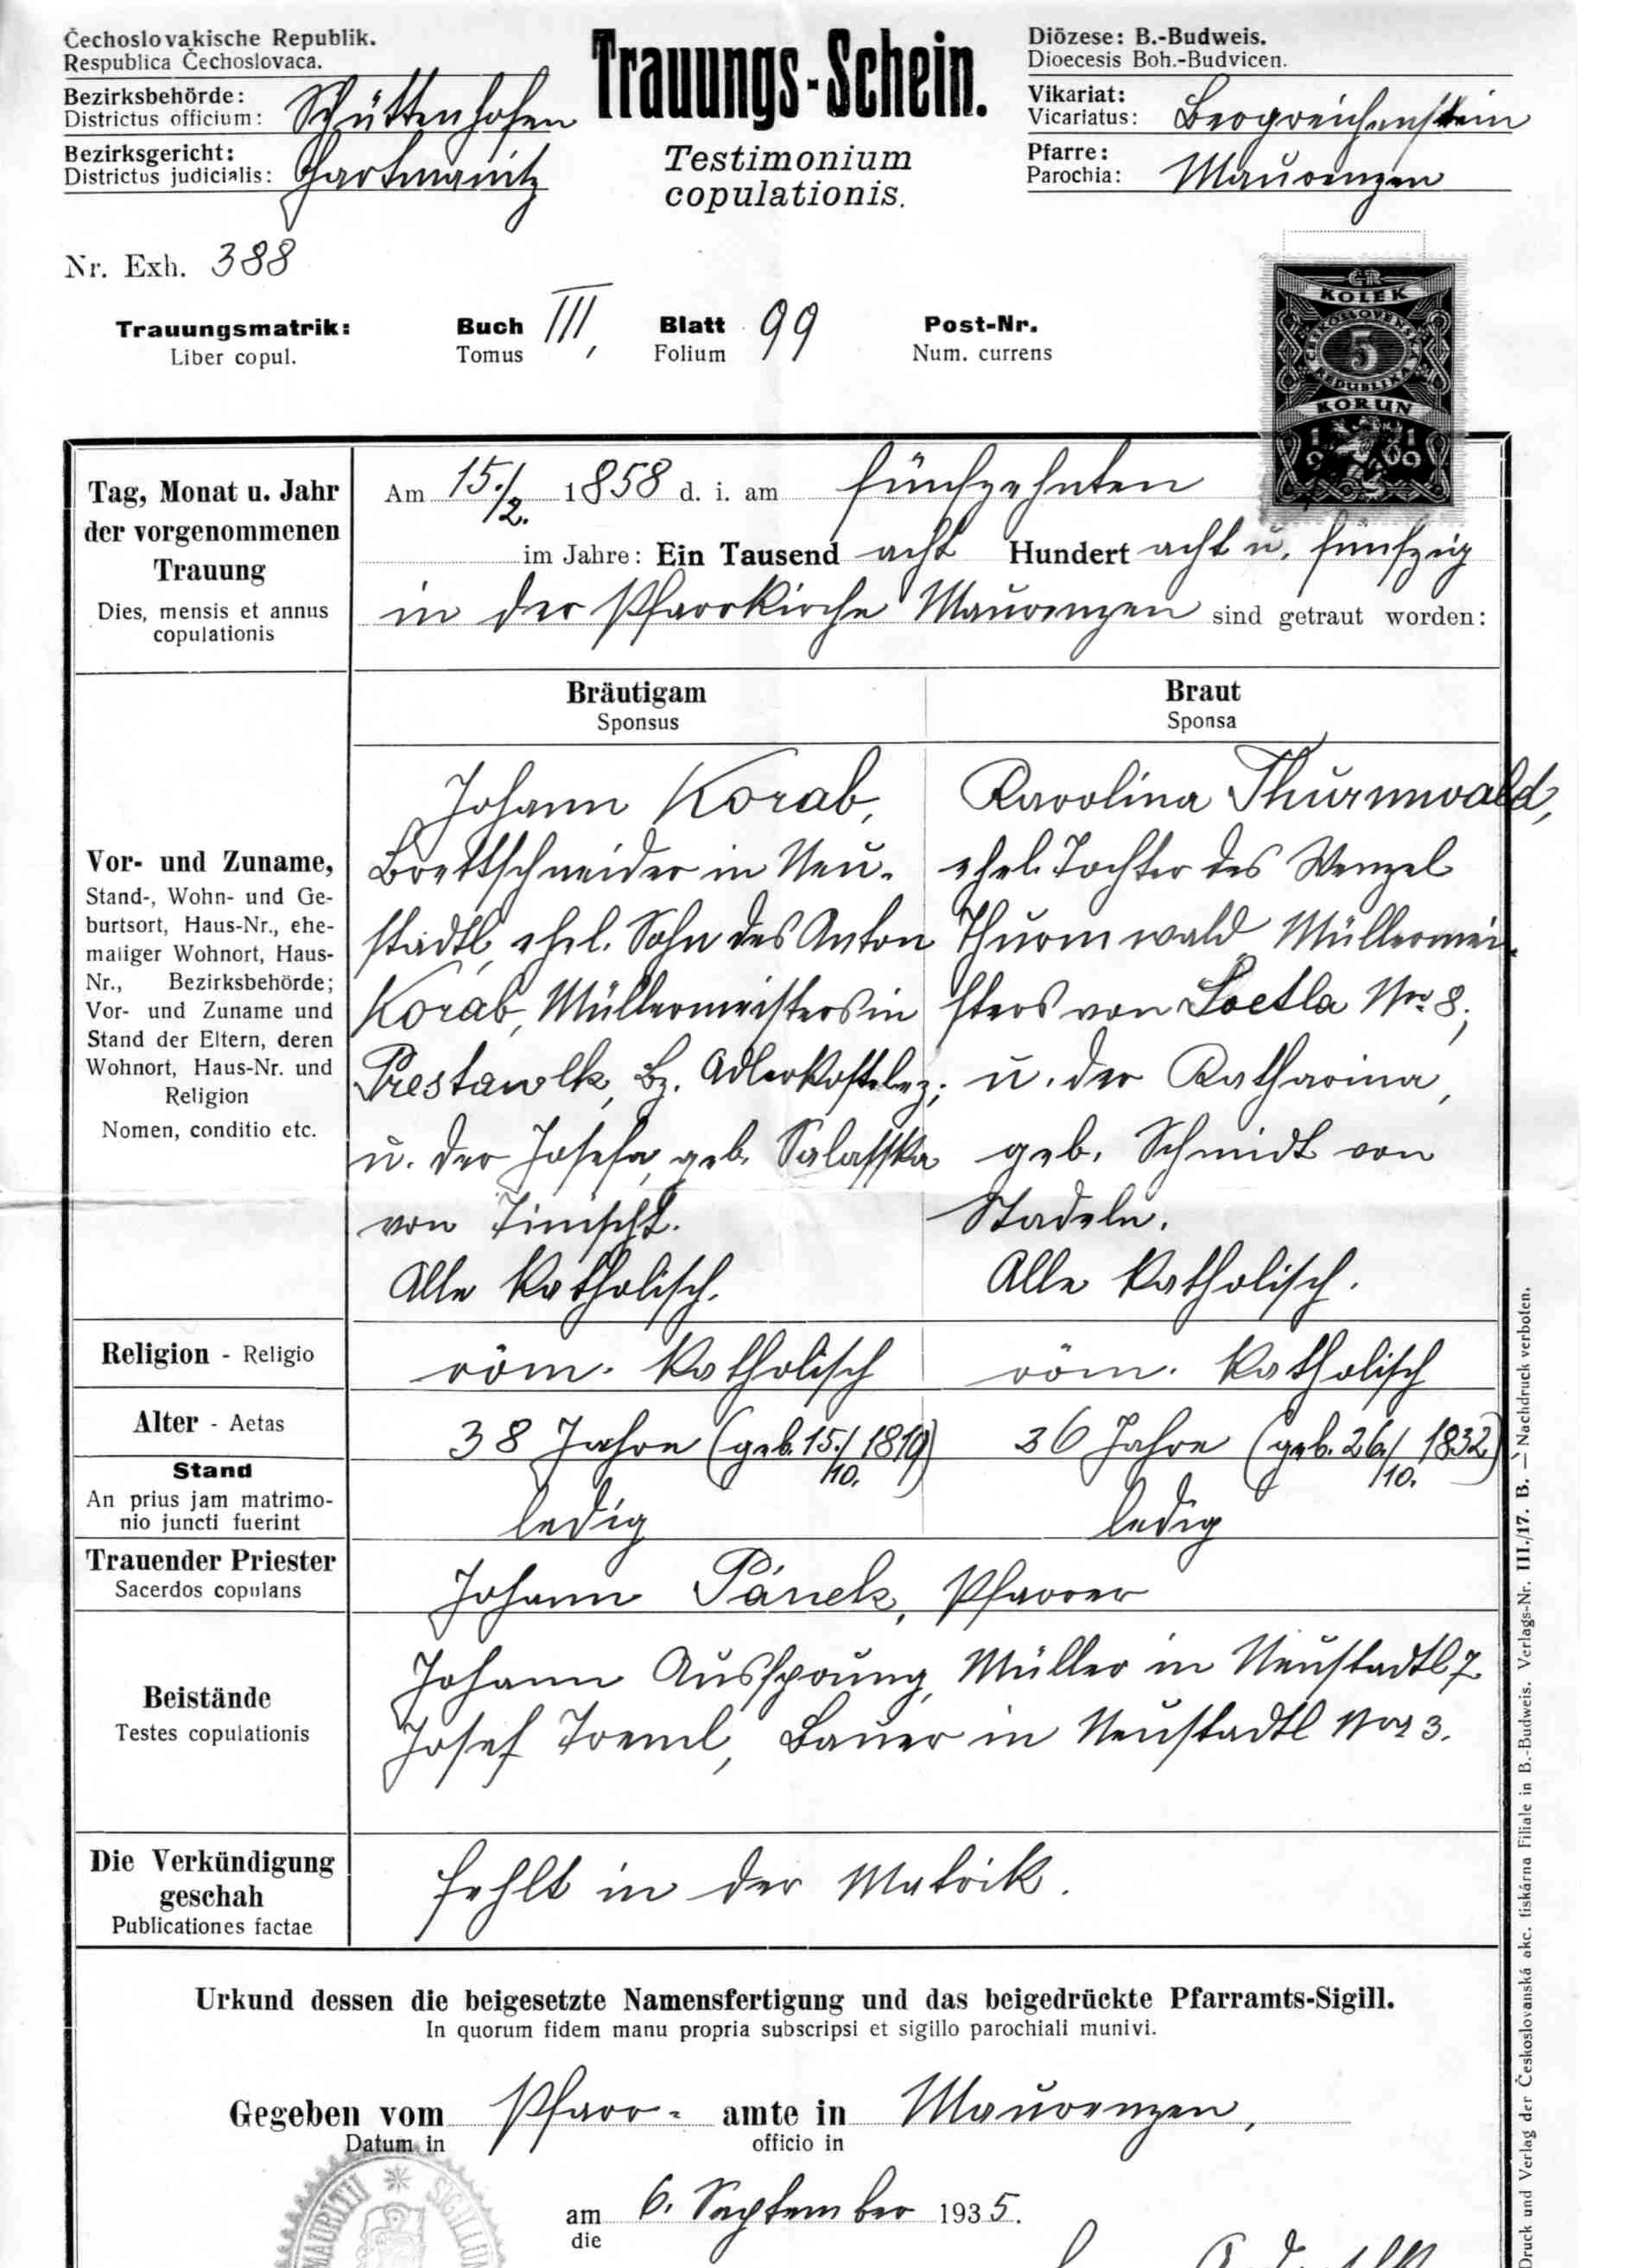 Čechoslovakische Republik.
Respublica Čechoslovaca.
Bezirksbehörde: Schüttenhofen
Districtus officium:
Bezirksgericht: Hartmanitz
Districtus judicialis:
Trauungs-Schein.
Testimonium
copulationis.
Diözese: B.-Budweis.
Dioecesis Boh.-Budvicen.
Vikariat: Bergreichenstein
Vicariatus:
Pfarre: Maurenzen
Parochia:
Nr. Exh. 388
Trauungsmatrik: Buch III, Blatt 99 Post-Nr.
Liber copul. Tomus Folium Num. currens
KOLEK
ČESKOSLOVENSKÁ
5
REPUBLIKA
KORUN
1919
Tag, Monat u. Jahr
der vorgenommenen
Trauung
Dies, mensis et annus
copulationis
Am 15./2. 1858 d. i. am fünfzehnten
im Jahre: Ein Tausend acht Hundert acht u. fünfzig
in der Pfarrkirche Maurenzen sind getraut worden:
Bräutigam
Sponsus
Braut
Sponsa
Vor- und Zuname,
Stand-, Wohn- und Ge-
burtsort, Haus-Nr., ehe-
maliger Wohnort, Haus-
Nr., Bezirksbehörde;
Vor- und Zuname und
Stand der Eltern, deren
Wohnort, Haus-Nr. und
Religion
Nomen, conditio etc.
Johann Korab,
Brettschneider in Neu-
stadtl, ehel. Sohn des Anton
Korab, Müllermeisters in
Prestawlk, Bz. Adlerkosteletz;
u. der Josefa, geb. Salaffka
von Tinischt.
Alle katholisch.
Karolina Thurmwald,
ehel. Tochter des Wenzel
Thurmwald Müllermei-
sters von Loetla Nro 8;
u. der Katharina,
geb. Schmidt von
Stadeln.
Alle katholisch.
Religion - Religio
röm. katholisch
röm. katholisch
Alter - Aetas
38 Jahre (geb. 15./10. 1819)
36 Jahre (geb. 26./10. 1832)
Stand
An prius jam matrimo-
nio juncti fuerint
ledig
ledig
Trauender Priester
Sacerdos copulans
Johann Pánek, Pfarrer
Beistände
Testes copulationis
Johann Aussprung, Müller in Neustadtl 7
Josef Treml, Bauer in Neustadtl Nro 3.
Die Verkündigung
geschah
Publicationes factae
fehlt in der Matrik.
Urkund dessen die beigesetzte Namensfertigung und das beigedrückte Pfarramts-Sigill.
In quorum fidem manu propria subscripsi et sigillo parochiali munivi.
Gegeben vom Pfarr- amte in Maurenzen,
Datum in officio in
am 6. September 1935.
die
MAURITII * SIGILLUM
Druck und Verlag der Českoslovanská akc. tiskárna Filiale in B.-Budweis. Verlags-Nr. III./17. B. — Nachdruck verboten.